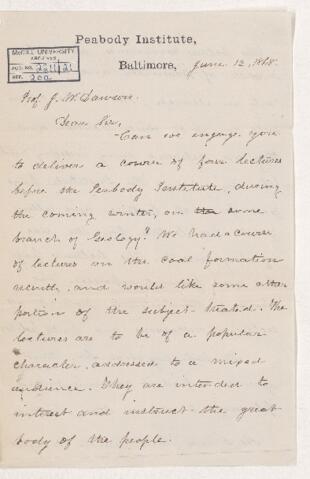 Peabody Institute,
Baltimore, June 12, 1868.
McGILL UNIVERSITY
ARCHIVES
ACC. NO. 2211/21
REF. 20a
Prof. J. W. Dawson.
Dear Sir,
Can we engage you
to deliver a course of four lectures
before the Peabody Institute, during
the coming winter, on the some
branch of Geology? We had a course
of lectures on the coal formation
recently, and would like some other
portion of the subject treated. The
lectures are to be of a popular
character, addressed to a mixed
audience. They are intended to
interest and instruct the great
body of the people.